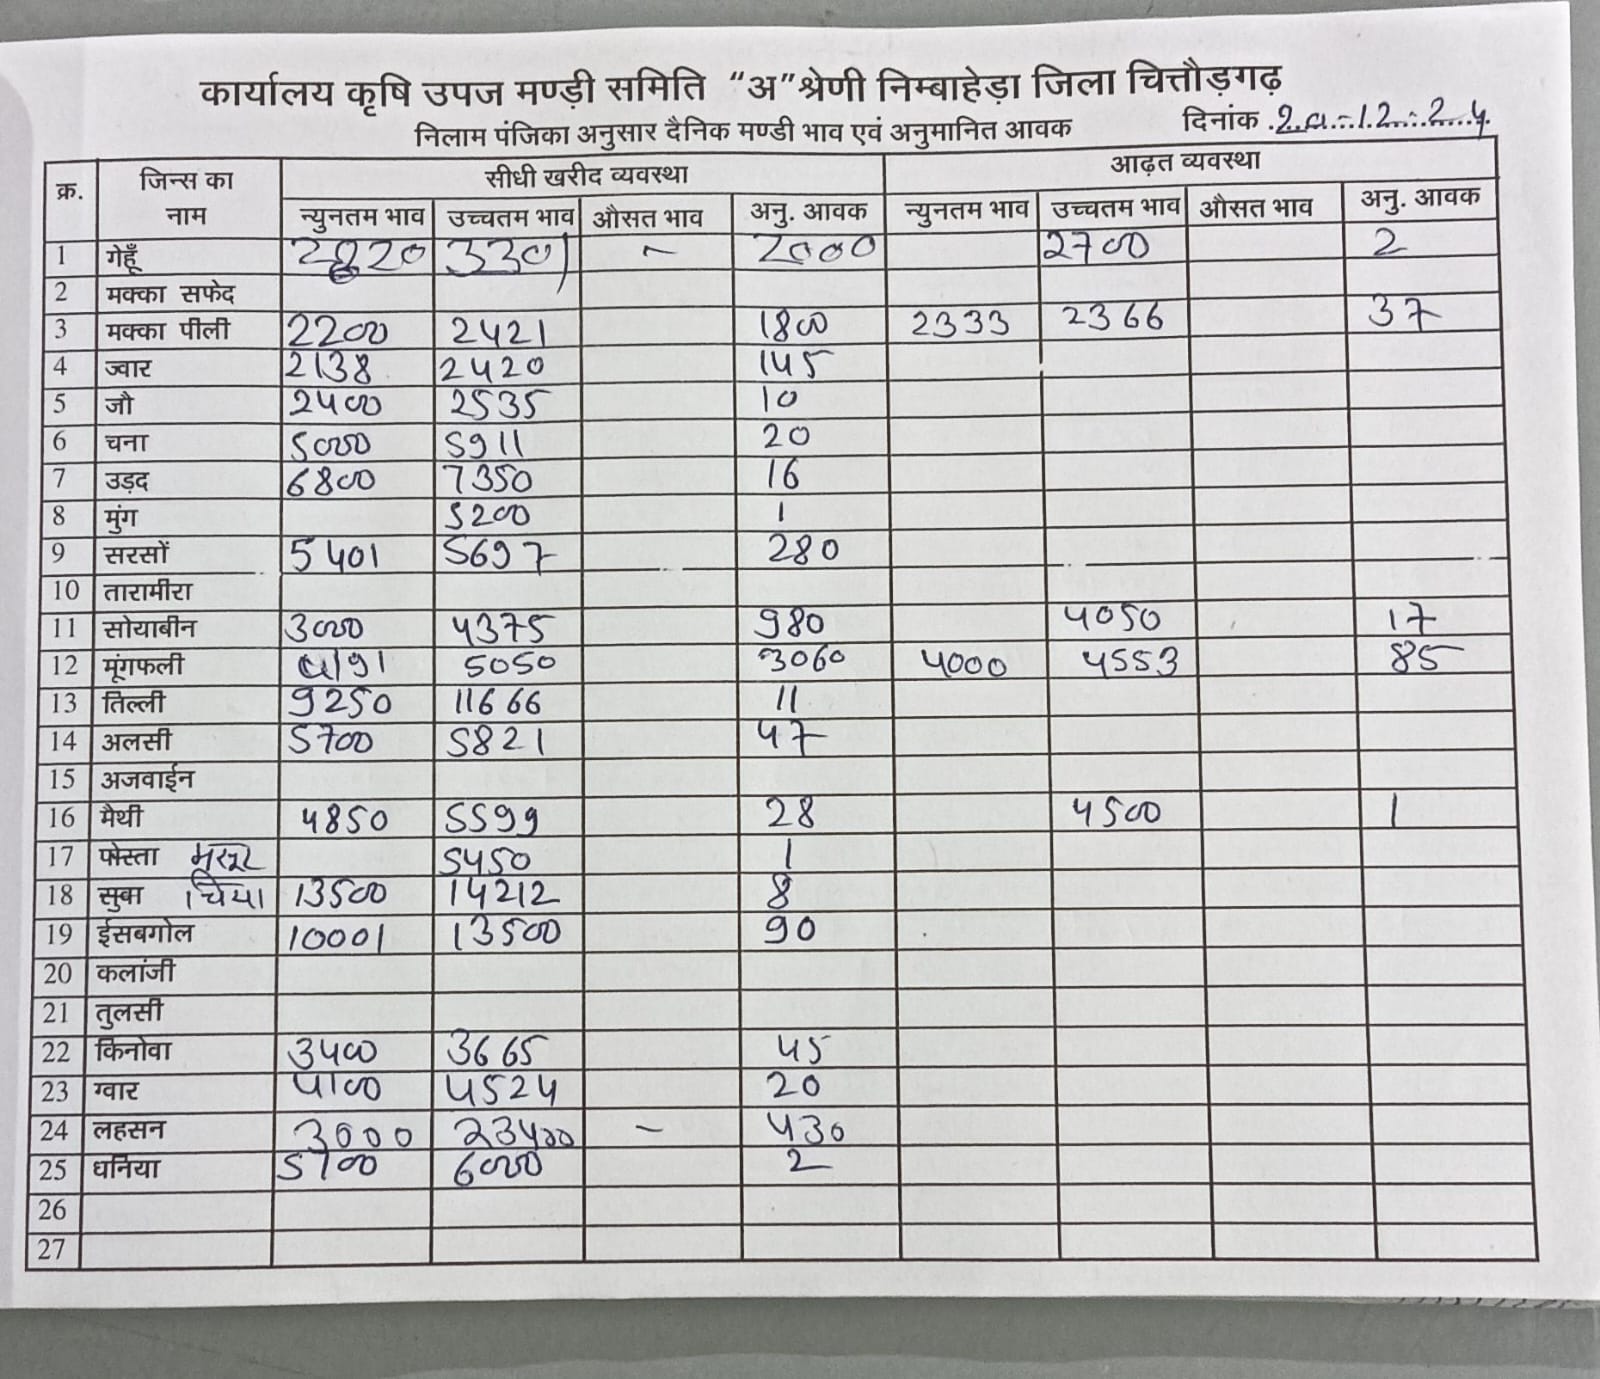 कार्यालय कृषि उपज मण्ड़ी समिति "अ" श्रेणी निम्बाहेड़ा जिला चित्तौड़गढ़
निलाम पंजिका अनुसार दैनिक मण्डी भाव एवं अनुमानित आवक दिनांक
क्र. जिन्स का नाम सीधी खरीद व्यवस्था आढ़त व्यवस्था
न्युनतम भाव उच्चतम भाव औसत भाव अनु. आवक न्युनतम भाव उच्चतम भाव औसत भाव अनु. आवक
1 गेहूँ 3301 - 2000 2700 2
2 मक्का सफेद
3 मक्का पीली 2200 2421 1800 2333 2366 37
4 ज्वार 2138 2420 145
5 जौ 2400 2535 10
6 चना 5000 5911 20
7 उड़द 6800 7350 16
8 मुंग 5200 1
9 सरसों 5401 5697 280
10 तारामीरा
11 सोयाबीन 3000 4375 980 4050 17
12 मूंगफली 4191 5050 3060 4000 4553 85
13 तिल्ली 9250 11666 11
14 अलसी 5700 5821 47
15 अजवाईन
16 मैथी 4850 5599 28 4500 1
17 पोस्ता मसूर 5450 1
18 सुवा चिया 13500 14212 8
19 ईसबगोल 10001 13500 90
20 कलांजी
21 तुलसी
22 किनोवा 3400 3665 45
23 ग्वार 4100 4524 20
24 लहसन 3000 23400 - 430
25 धनिया 5700 6000 2
26
27